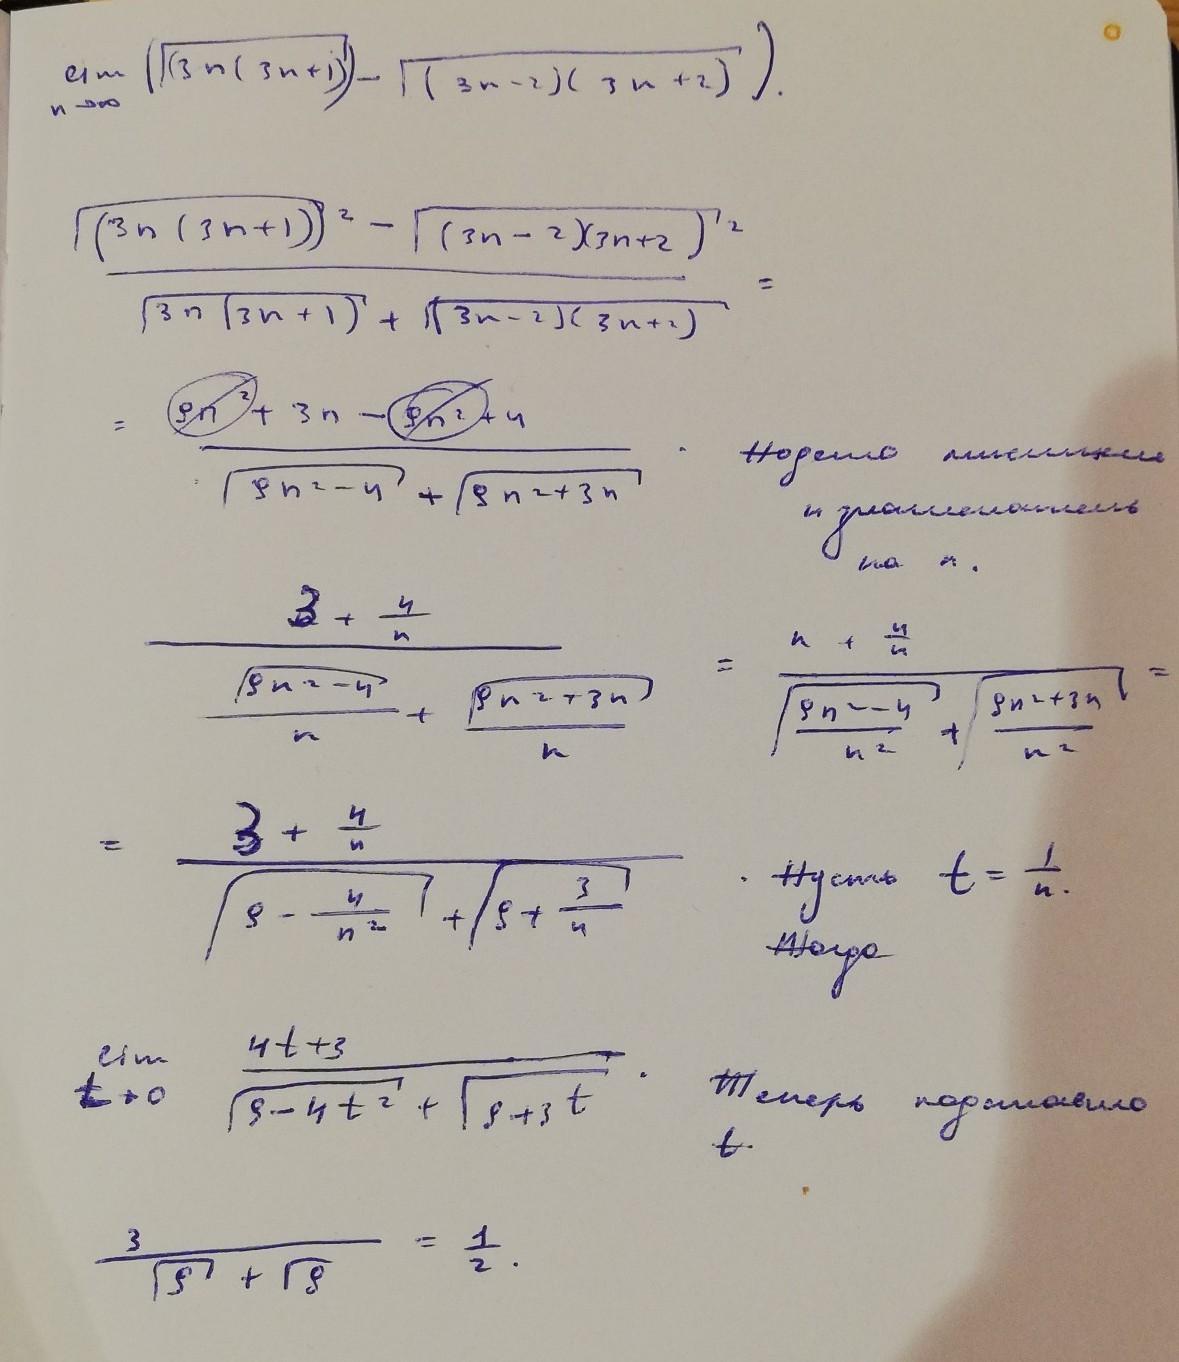 lim n→∞ (√(3n(3n+1)) − √((3n−2)(3n+2))).
√(3n(3n+1))² − √((3n−2)(3n+2))²
/ √(3n(3n+1)) + √((3n−2)(3n+2)) =
= 9n² + 3n − 9n² + 4
/ √(9n²−4) + √(9n²+3n) . Поделю числитель
и знаменатель
на n.
3 + 4/n = n + 4/n
/ √(9n²−4)/n + √(9n²+3n)/n / √((9n²−4)/n²) + √((9n²+3n)/n²) =
= 3 + 4/n
/ √(9 − 4/n²) + √(9 + 3/n) . Пусть t = 1/n.
Тогда
lim t→0 4t+3
/ √(9−4t²) + √(9+3t) . Теперь подставлю
t.
3 / √9 + √9 = 1/2.